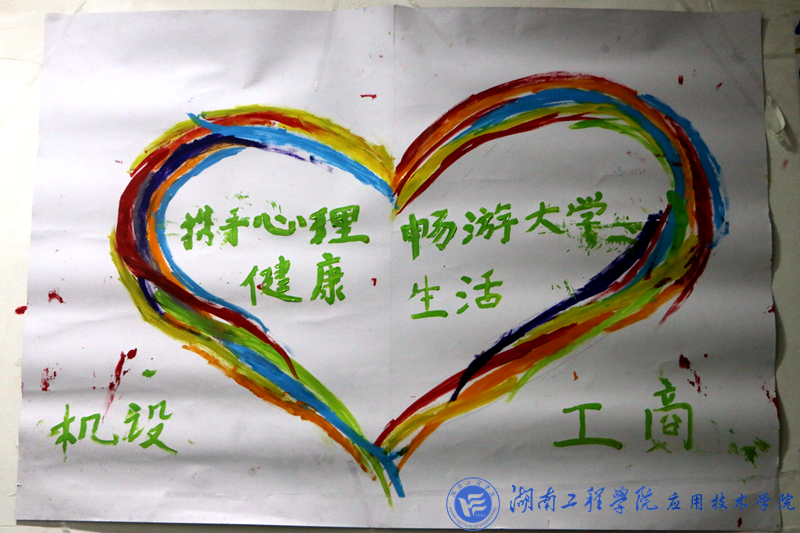 携手心理 畅游大学
健康 生活
机设 工商
湖南工程學院 应用技术学院